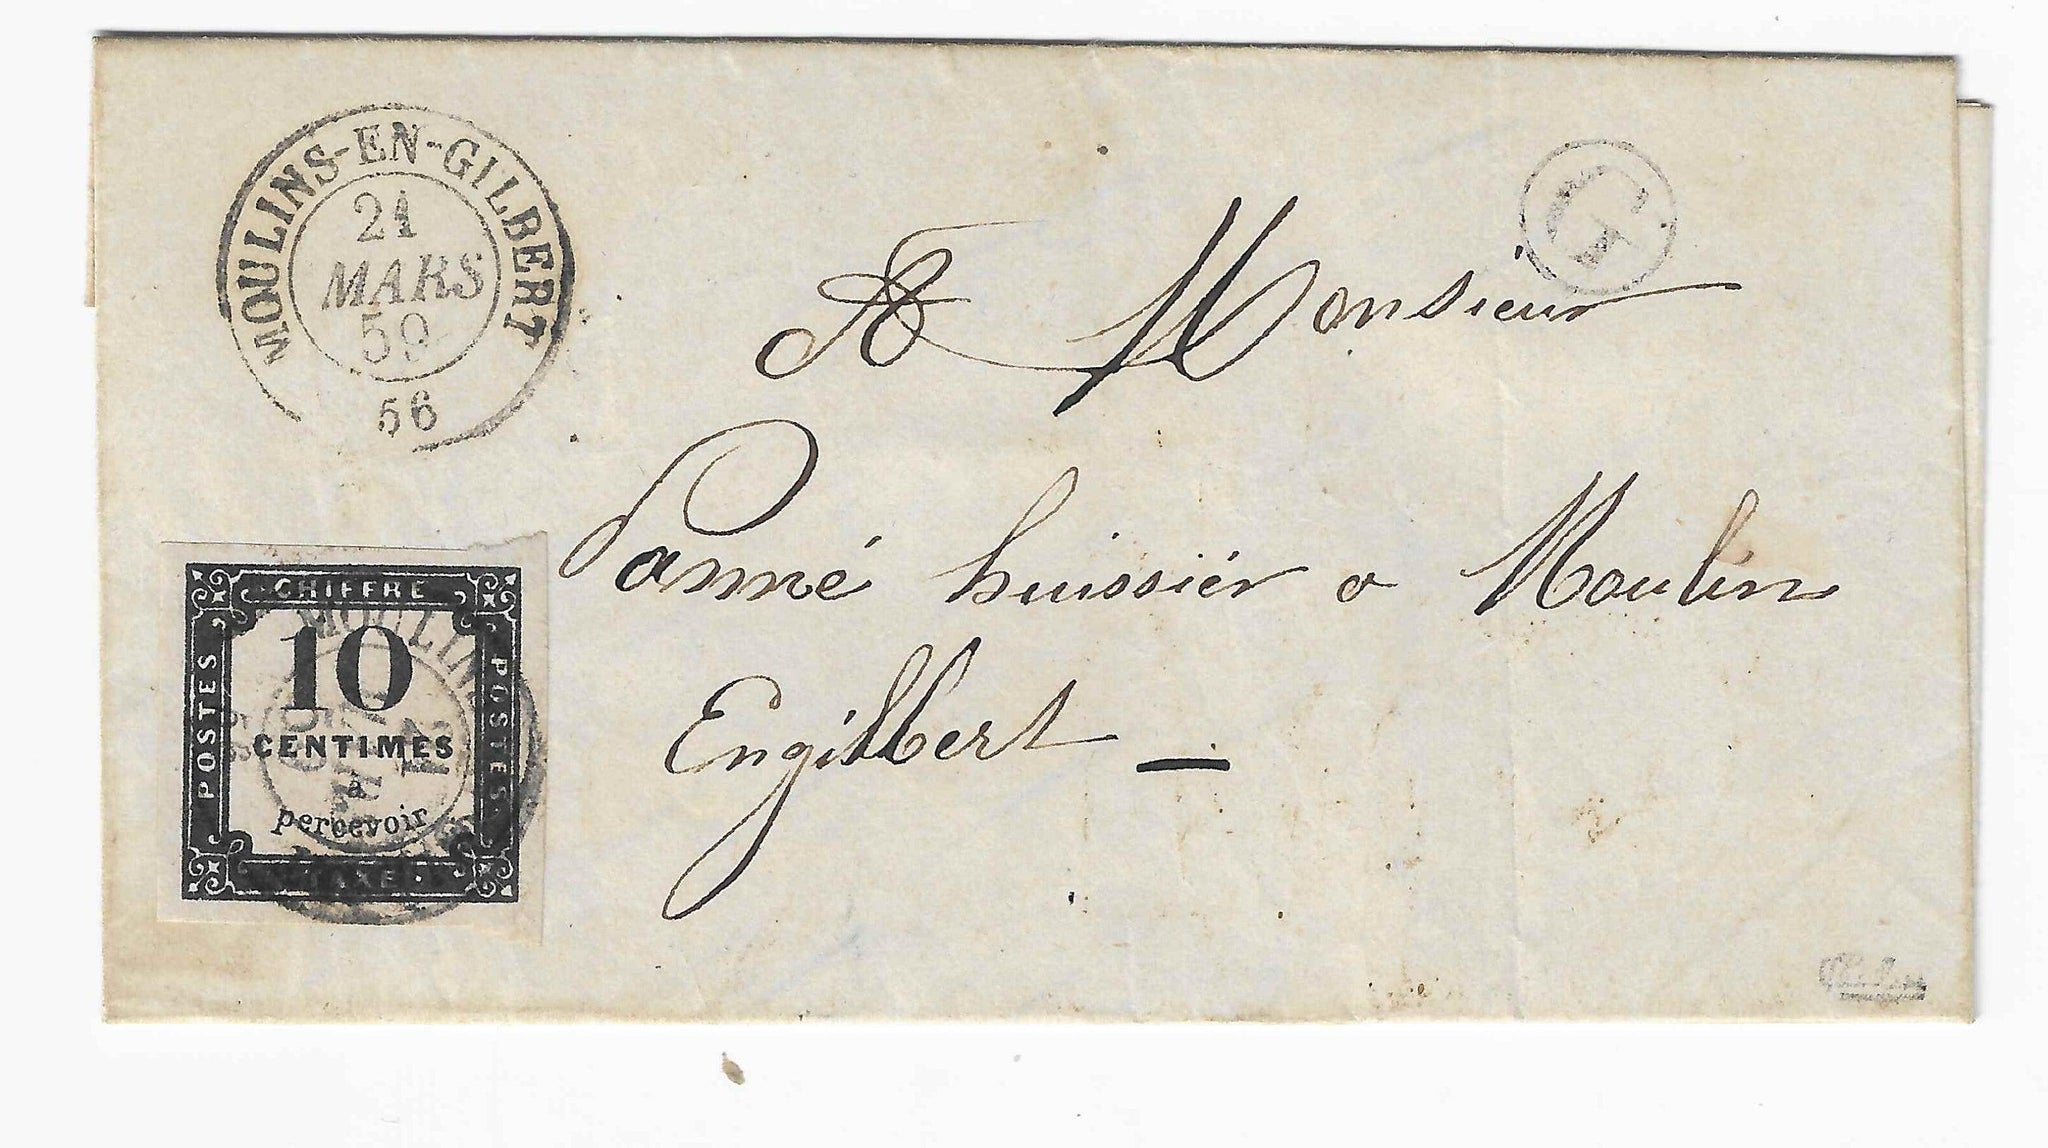 MOULINS-EN-GILBERT
21
MARS
59
56
G
A Monsieur
Panné huissiér a Moulin
Engilbert —
CHIFFRE
POSTES
10
CENTIMES
à
percevoir
POSTES
TAXE
MOULINS
21
59